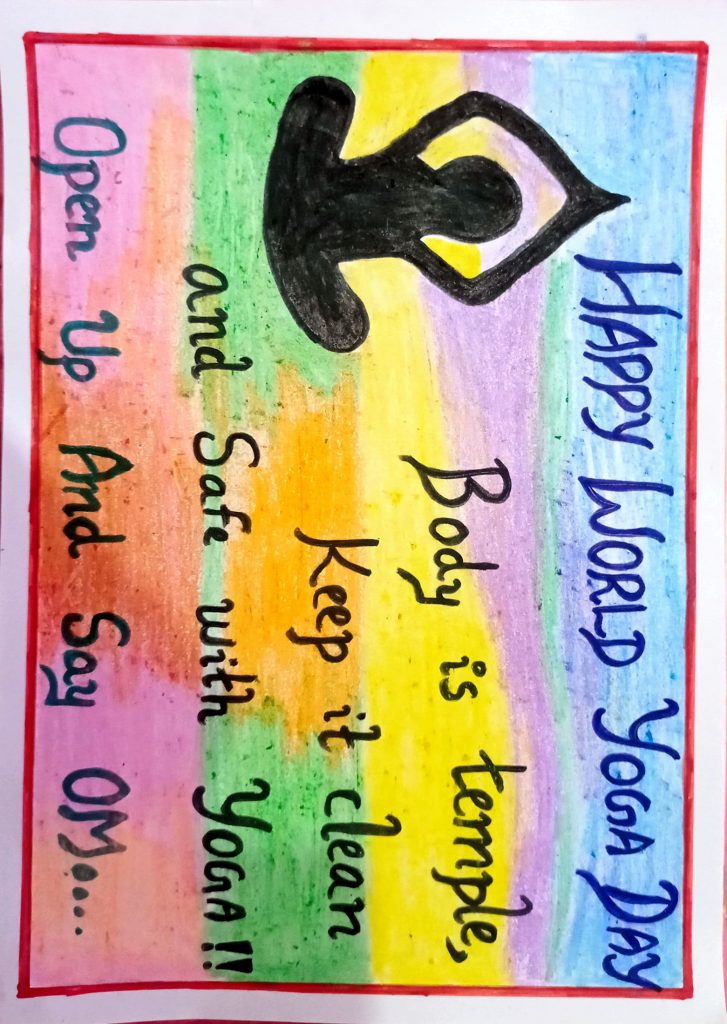 HAPPY WORLD YOGA DAY
Body is temple,
Keep it clean
and Safe with YOGA!!
Open Up And Say OM....